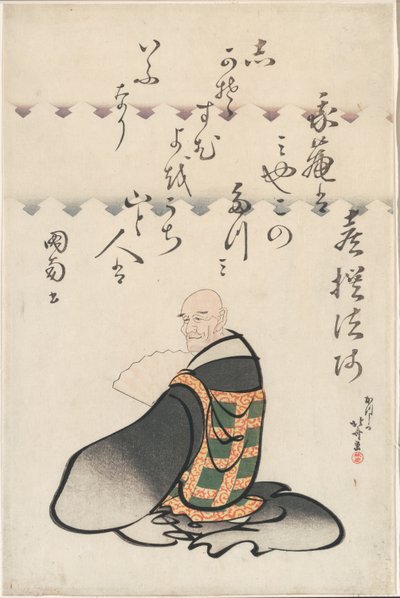 喜撰法師
我菴は
みやこの
たつミ
志
かぞ
すむ
よをうち
山と人は
いふ
なり